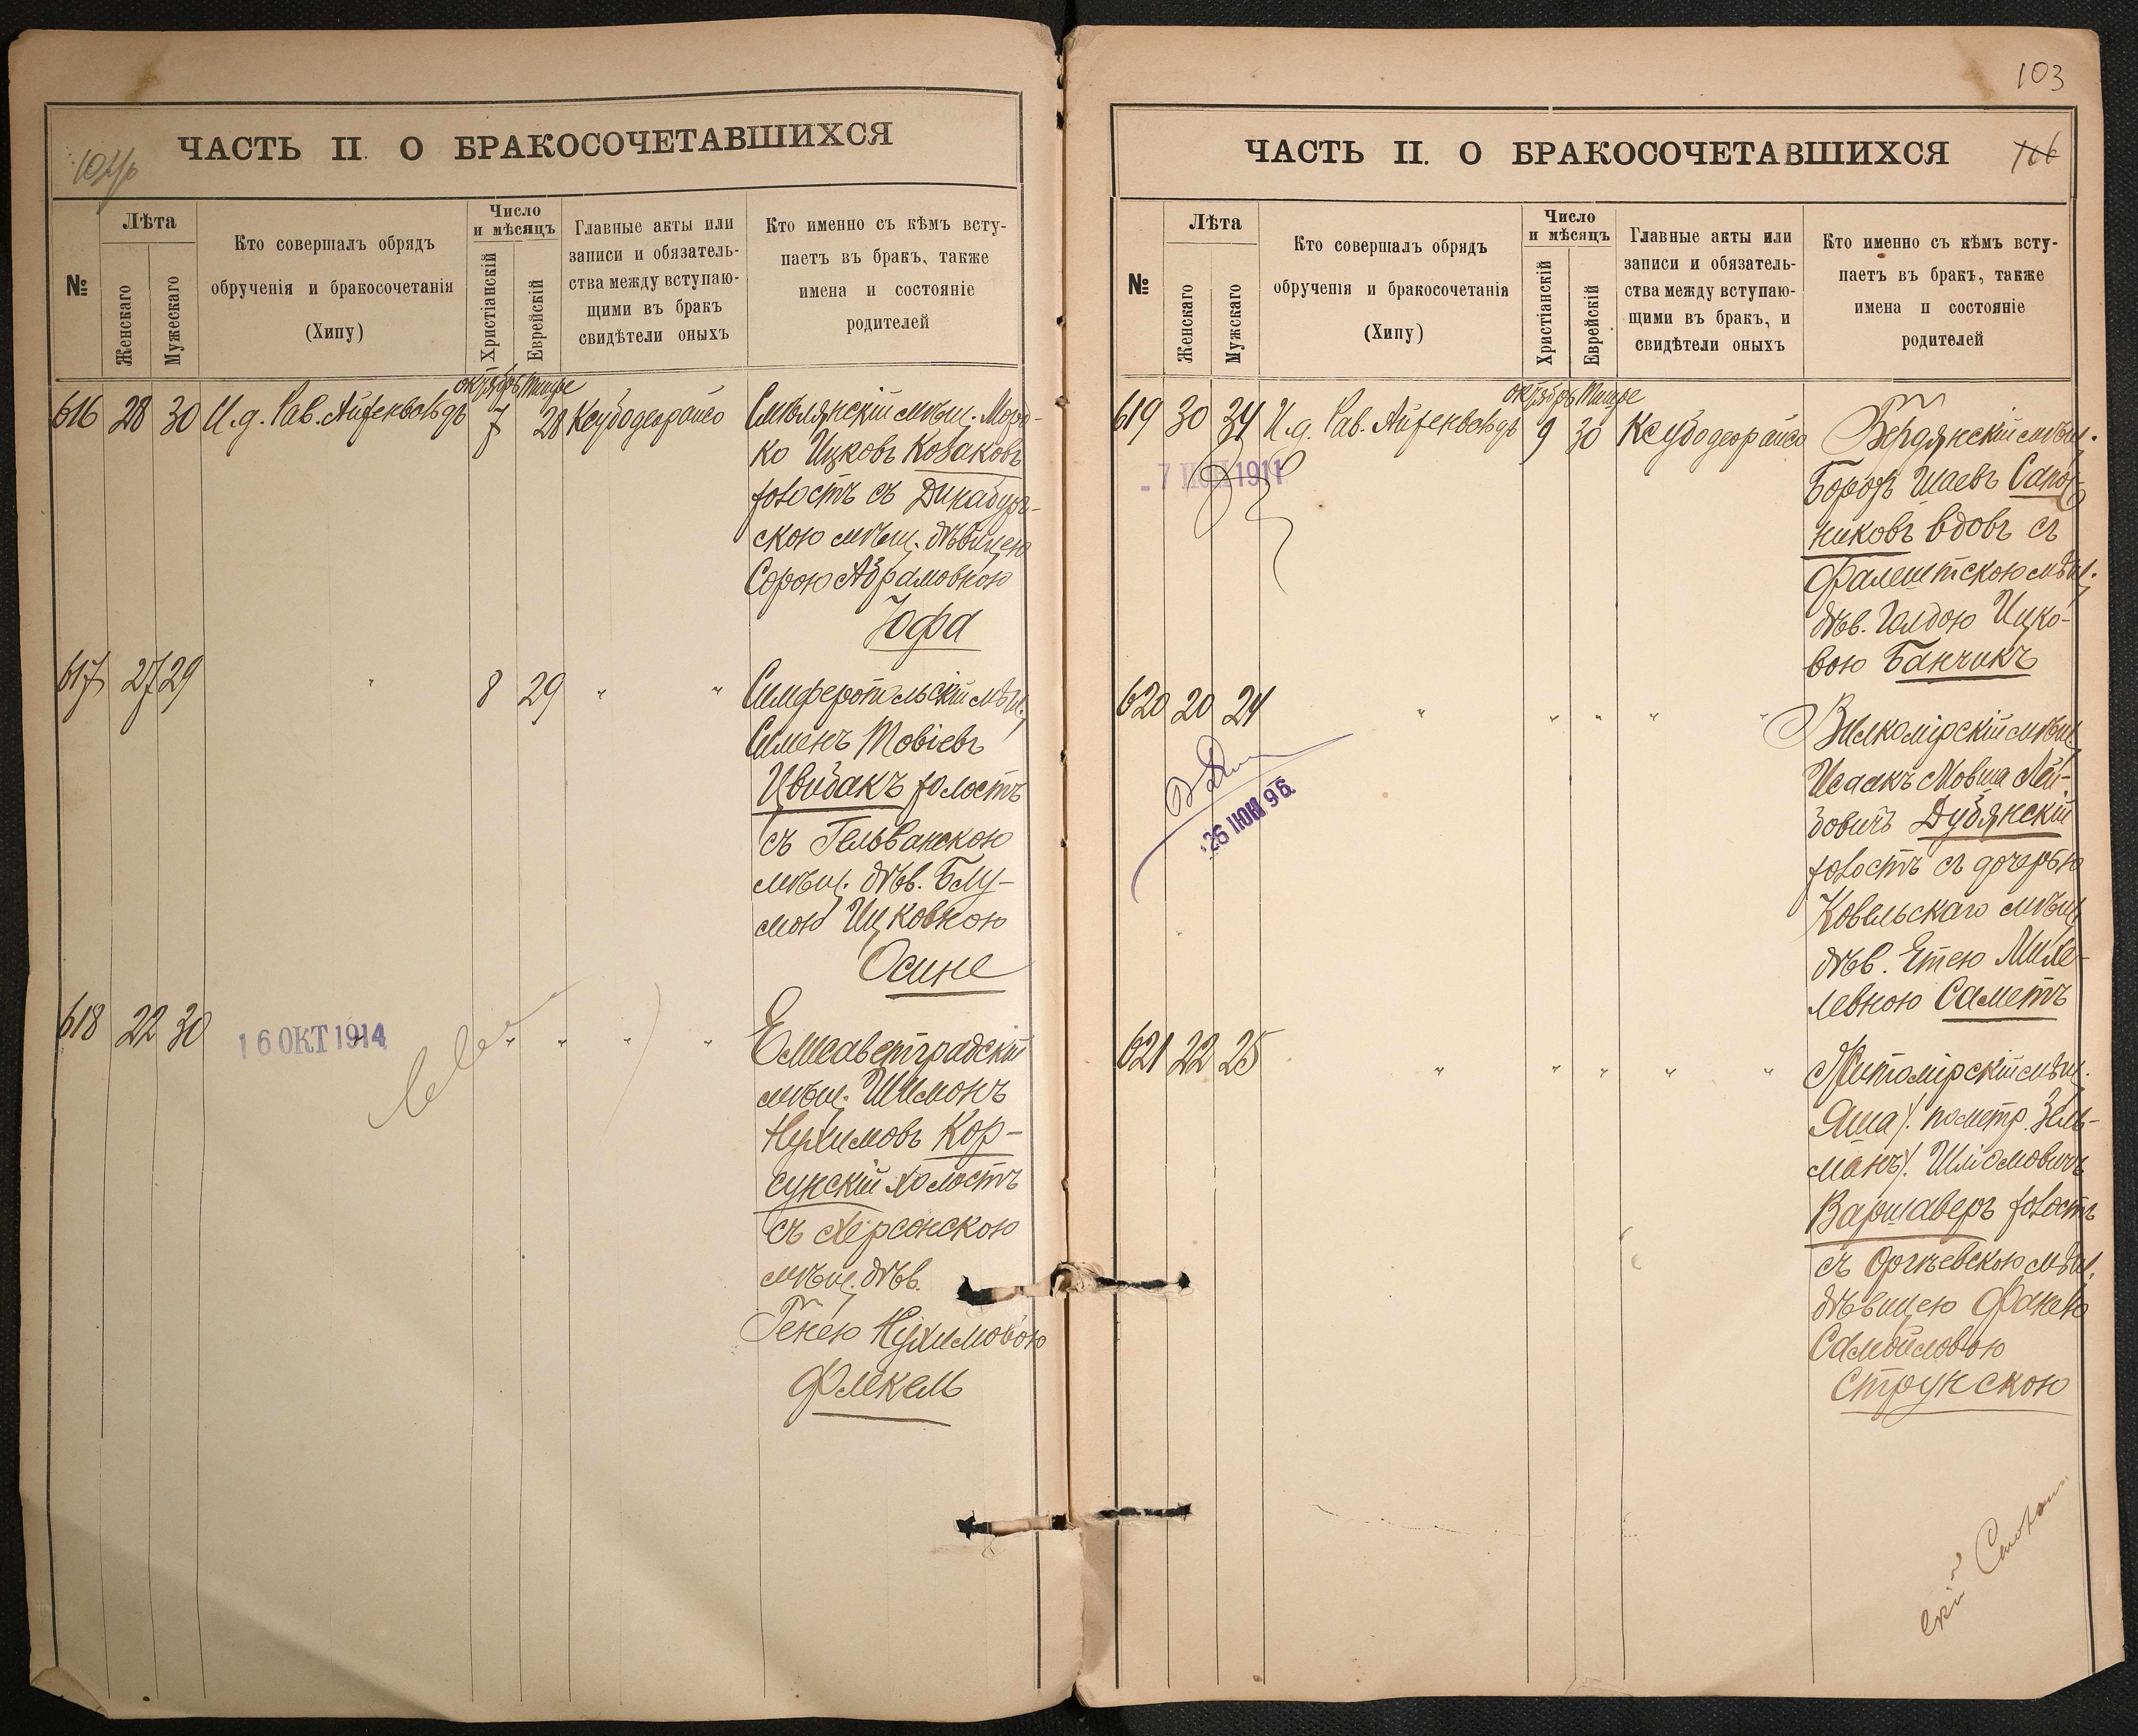 ЧАСТЬ II. О БРАКОСОЧЕТАВШИХСЯ
№
Лѣта
Женскаго
Мужескаго
Кто совершалъ обрядъ
обрученія и бракосочетанія
(Хипу)
Число
и мѣсяцъ
Христіанскій
Еврейскій
Главные акты или
записи и обязатель-
ства между вступаю-
щими въ бракъ
свидѣтели оныхъ
Кто именно съ кѣмъ всту-
паетъ въ бракъ, также
имена и состояніе
родителей
октябрь Тишре
616 28 30 И.д. Рав. Айзенвейсъ 7 28
Смѣлянскій мѣщ. Морд-
ко Ицковъ Козаковъ
холостъ съ
скою мѣщ. дѣвицею
Сорою Абрамовною
Юфа
617 27 29 " 8 29 " "
Симферопольскій мѣщ.
Сименъ Товіевъ
Цвибакъ холостъ
съ Гельванскою
мѣщ. дѣв. Блу-
мою Ицковною
Осине
618 22 30 " " " " "
16 ОКТ 1914
Елисаветградскій
мѣщ. Шимонъ
Нухимовъ Кор-
сунскій холостъ
съ Херсонскою
мѣщ. дѣв.
Генею Нухимовою
Флекель
103
ЧАСТЬ II. О БРАКОСОЧЕТАВШИХСЯ
106
№
Лѣта
Женскаго
Мужскаго
Кто совершалъ обрядъ
обрученія и бракосочетанія
(Хипу)
Число
и мѣсяцъ
Христіанскій
Еврейскій
Главные акты или
записи и обязатель-
ства между вступаю-
щими въ бракъ, и
свидѣтели оныхъ
Кто именно съ кѣмъ всту-
паетъ въ бракъ, также
имена и состояніе
родителей
октябрь Тишре
619 30 34 И.д. Рав. Айзенвейсъ 9 30
1911
Бердянскій мѣщ.
Борохъ Шаевъ Сапож-
никовъ вдовъ съ
Фалештскою мѣщ.
дѣв. Голдою Ицко-
вою Банчикъ
620 20 24 " " " " "
26 ИЮН 96
Вилкомірскій мѣщ.
Исаакъ Мовша Лей-
бовичъ Дубянскій
холостъ съ дочерью
Ковельскаго мѣщ.
дѣв. Етею Михе-
левною Саметъ
621 22 25 " " " " "
Житомірскій мѣщ.
Яша /: по метр. Зель-
манъ :/ Шліомовичъ
Варшаверъ холостъ
съ Оргѣевскою мѣщ.
дѣвицею Фанею
Самойловою
Струнскою